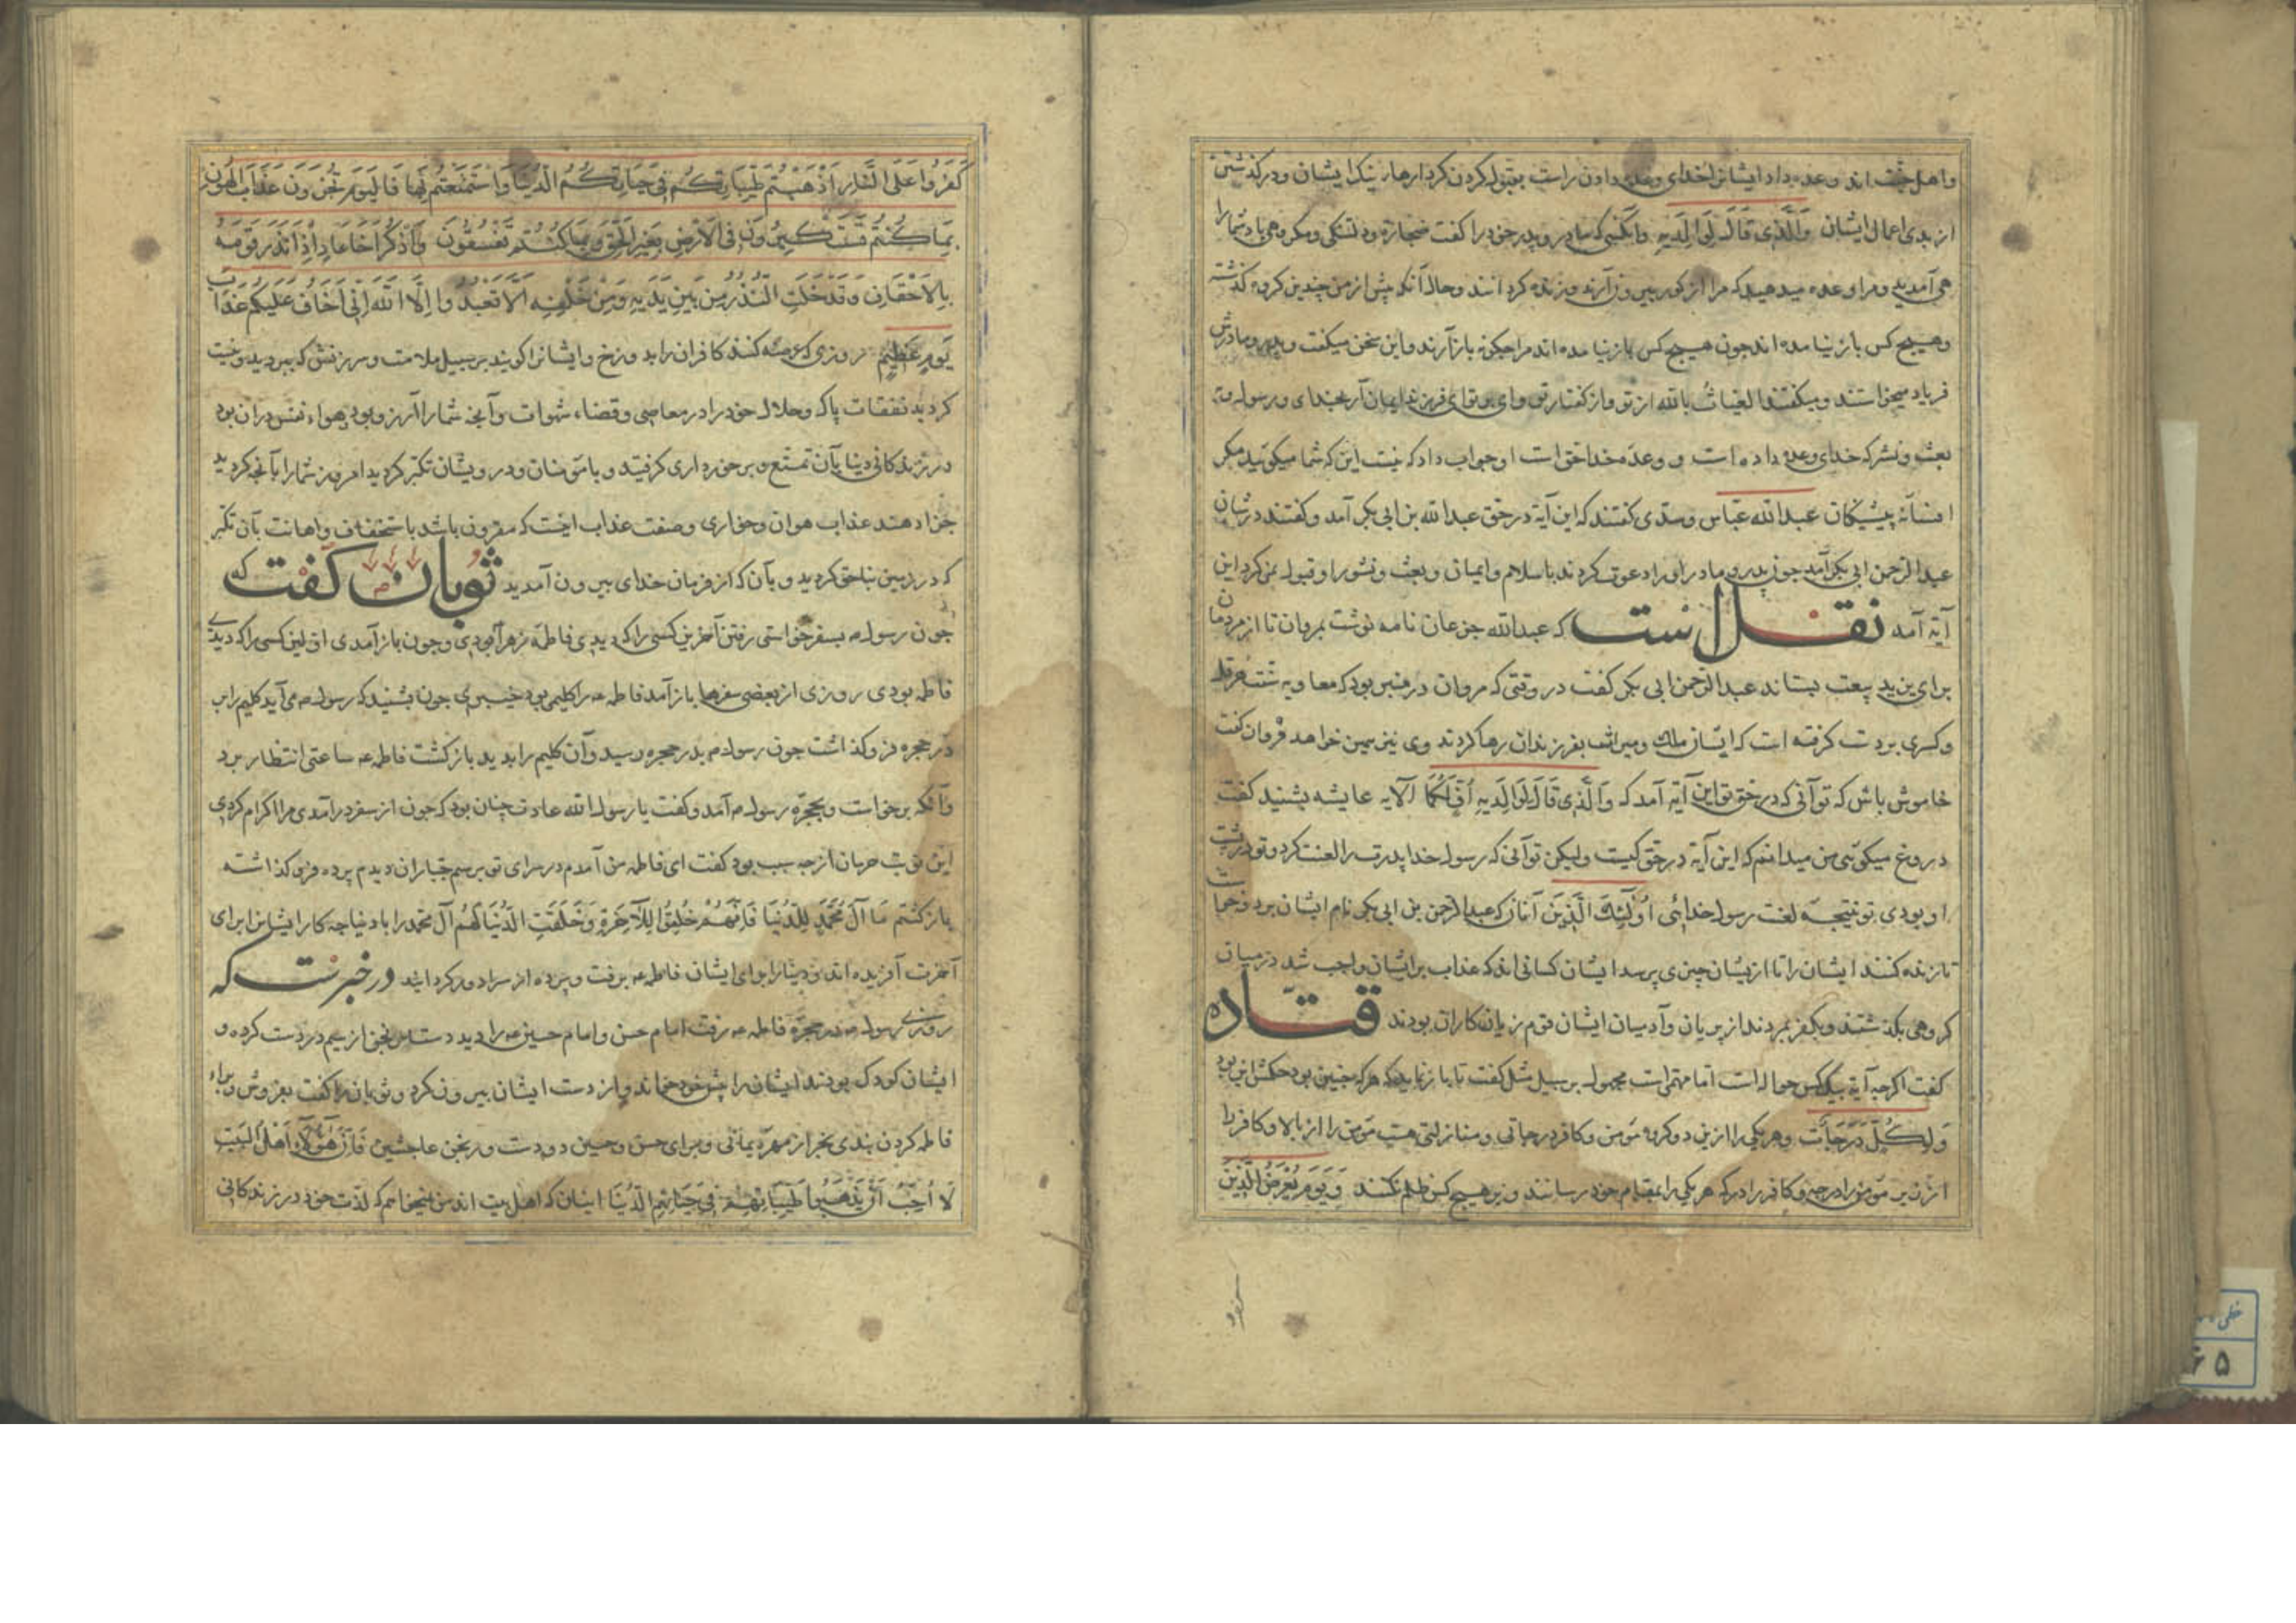 واهل جنت اند وعده داد ایشانرا خدای وعده دادن راست بقبول کردن کردارهای نیک ایشان ودرکذشتن
از بدی اعمال ایشان وَالَّذِی قَالَ لِوَالِدَیهِ وانکسی که مادر و پدر خود را کفت ضجارة ودلتنکی ومکروهی باد شما را
می آمدید ومرا وعده میدهید که مرا از کور بیرون آرند وزنده کردانند وحال آنکه پیش از من چندین کروه کذشته
وهیچ کس باز نیامده اند جون هیچ کس باز نیامده اند مرا جکونه باز آرند واین سخن میکفت وپدر ومادرش
فریاد میخواستند ومیکفتند الغیاث بالله از تو واز کفتار تو وای بر تو ای فرزند ایمان آر بخدای ورسول و
بعث ونشر که خدای وعده داده است و وعدۀ خدا حق است او جواب داد که نیست این که شما میکوئید مکر
افسانۀ پیشینکان عبدالله عباس وسدی کفتند که این آیة در حق عبدالله بن ابی بکر آمد وکفتند در شان
عبدالرحمن ابی بکر آمد جون پدر ومادر او را دعوت کردند باسلام وایمان وبعث ونشور او قبول نمی کرد این
آیة آمد نقلست که عبدالله جزعان نامه نوشت بمروان تا از مردمان
برای یزید بیعت بستاند عبدالرحمن ابی بکر کفت در وقتی که مروان در منبر بود که معاویه سنت هرقل
وکسری بردست کرفته است که ایشان ملک ومیراث بفرزندان رها کردند وی نیز همین خواهد مروان کفت
خاموش باش که تو آنی که در حق تو این آیة آمد که وَالَّذِی قَالَ لِوَالِدَیهِ اُفٍّ لَکُمَا الآیه عایشه بشنید کفت
دروغ میکوئی من میدانم که این آیة در حق کیست ولیکن تو آنی که رسول خدا پدرت را لعنت کرد وتو در پشت
او بودی تو نتیجۀ لعنت رسول خدائی اُولٰئِکَ الَّذِینَ آنان که عبدالرحمن بن ابی بکر نام ایشان برد وخواست
تا زنده کنند ایشان را تا از ایشان چیزی پرسد ایشان کسانی اند که عذاب بر ایشان واجب شد در میان
کروهی بکذشتند وبکفر بمردند از پریان وآدمیان ایشان قوم زیان کاران بودند قتاده
کفت اکرجه آیة بیک کس حواله است اما مبهم است محمول بر سبیل مثل کفت تا باز نماید که هر که جنین بود حکمش این بود
وَلِکُلٍّ دَرَجَاتٌ وهر یکی را از این دو کروه مؤمن وکافر درجاتی ومنازلی هست مؤمن را از بالا وکافر را
از زیر مؤمنرا درجه وکافر را درکه هر یکی را بمقام خود رسانند وبر هیچ کس ظلم نکنند وَیَومَ یُعرَضُ الَّذِینَ
کَفَرُوا عَلَی النَّارِ اَذهَبتُم طَیِّبَاتِکُم فِی حَیَاتِکُمُ الدُّنیَا وَاستَمتَعتُم بِهَا فَالیَومَ تُجزَونَ عَذَابَ الهُونِ
بِمَا کُنتُم تَستَکبِرُونَ فِی الاَرضِ بِغَیرِ الحَقِّ وَبِمَا کُنتُم تَفسُقُونَ وَاذکُر اَخَا عَادٍ اِذ اَنذَرَ قَومَهُ
بِالاَحقَافِ وَقَد خَلَتِ النُّذُرُ مِن بَینِ یَدَیهِ وَمِن خَلفِهِ اَلَّا تَعبُدُوا اِلَّا اللّٰهَ اِنِّی اَخَافُ عَلَیکُم عَذَابَ
یَومٍ عَظِیمٍ روزی که عرضه کنند کافران را بدوزخ وایشانرا کویند بر سبیل ملامت وسرزنش که ببردید ونیست
کردید نفقات پاک وحلال خود را در معاصی وقضاء شهوات وآنچه شما را آرزو بود وهواء نفس در ان بود
در زندکانی دنیا بآن تمتع وبرخورداری کرفتید وبا مؤمنان ودرویشان تکبر کردید امروز شما را بآنچه کردید
جزا دهند عذاب هوان وخواری وصفت عذاب اینست که مقرون باشد باستخفاف واهانت بآن تکبر
که در زمین بناحق کردید وبآن که از فرمان خدای بیرون آمدید ثوبان کفت که
جون رسول ص بسفر خواستی رفتن آخرین کسی را که دیدی فاطمه زهرا بودی وجون باز آمدی اولین کسی را که دیدی
فاطمه بودی روزی از بعضی سفرها باز آمد فاطمه ع را کلیمی بود خیبری جون بشنید که رسول ص می آید کلیم را بر
در حجره فرو کذاشت جون رسول ص بدر حجره رسید وآن کلیم را بدید باز کشت فاطمه ع ساعتی انتظار برد
وآنکه برخواست وبحجرۀ رسول ص آمد وکفت یا رسول الله عادت چنان بود که جون از سفر درآمدی مرا اکرام کردی
این نوبت حرمان از جه سبب بود کفت ای فاطمه من آمدم در سرای تو بر رسم جباران دیدم پرده فرو کذاشته
باز کشتم مَا آلَ مُحَمَّدٍ لِلدُّنیَا فَاِنَّهُم خُلِقُوا لِلآخِرَةِ وَخُلِقَتِ الدُّنیَا لَهُم آل محمد را با دنیا جه کار ایشانرا برای
آخرت آفریده اند ودنیا را برای ایشان فاطمه ع برفت وپرده از سرا دور کردانید در خبرست که
روزی رسول ص در حجرۀ فاطمه ع رفت امام حسن وامام حسین ع را دید دست برنجن از سیم در دست کرده و
ایشان کودک بودند ایشان را پیش خود خواند واز دست ایشان بیرون کرد وثوبان را کفت بفروش وبراء
فاطمه کردن بندی بخر از مهرۀ یمانی وبرای حسن وحسین دو دست ورنجن عاج فَاِنَّ هٰؤُلَاءِ اَهلُ البَیتِ
لَا اُحِبُّ اَن یَذهَبُوا طَیِّبَاتِهِم فِی حَیَاتِهِمُ الدُّنیَا اینان که اهل بیت اند من نمیخواهم که لذت خود در زندکانی
خطی
۶۵